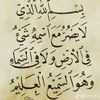 بِسْمِ اللَّهِ الَّذِي
لَا يَضُرُّ مَعَ اسْمِهِ شَيْءٌ
فِي الْأَرْضِ وَلَا فِي السَّمَاءِ
وَهُوَ السَّمِيعُ الْعَلِيمُ